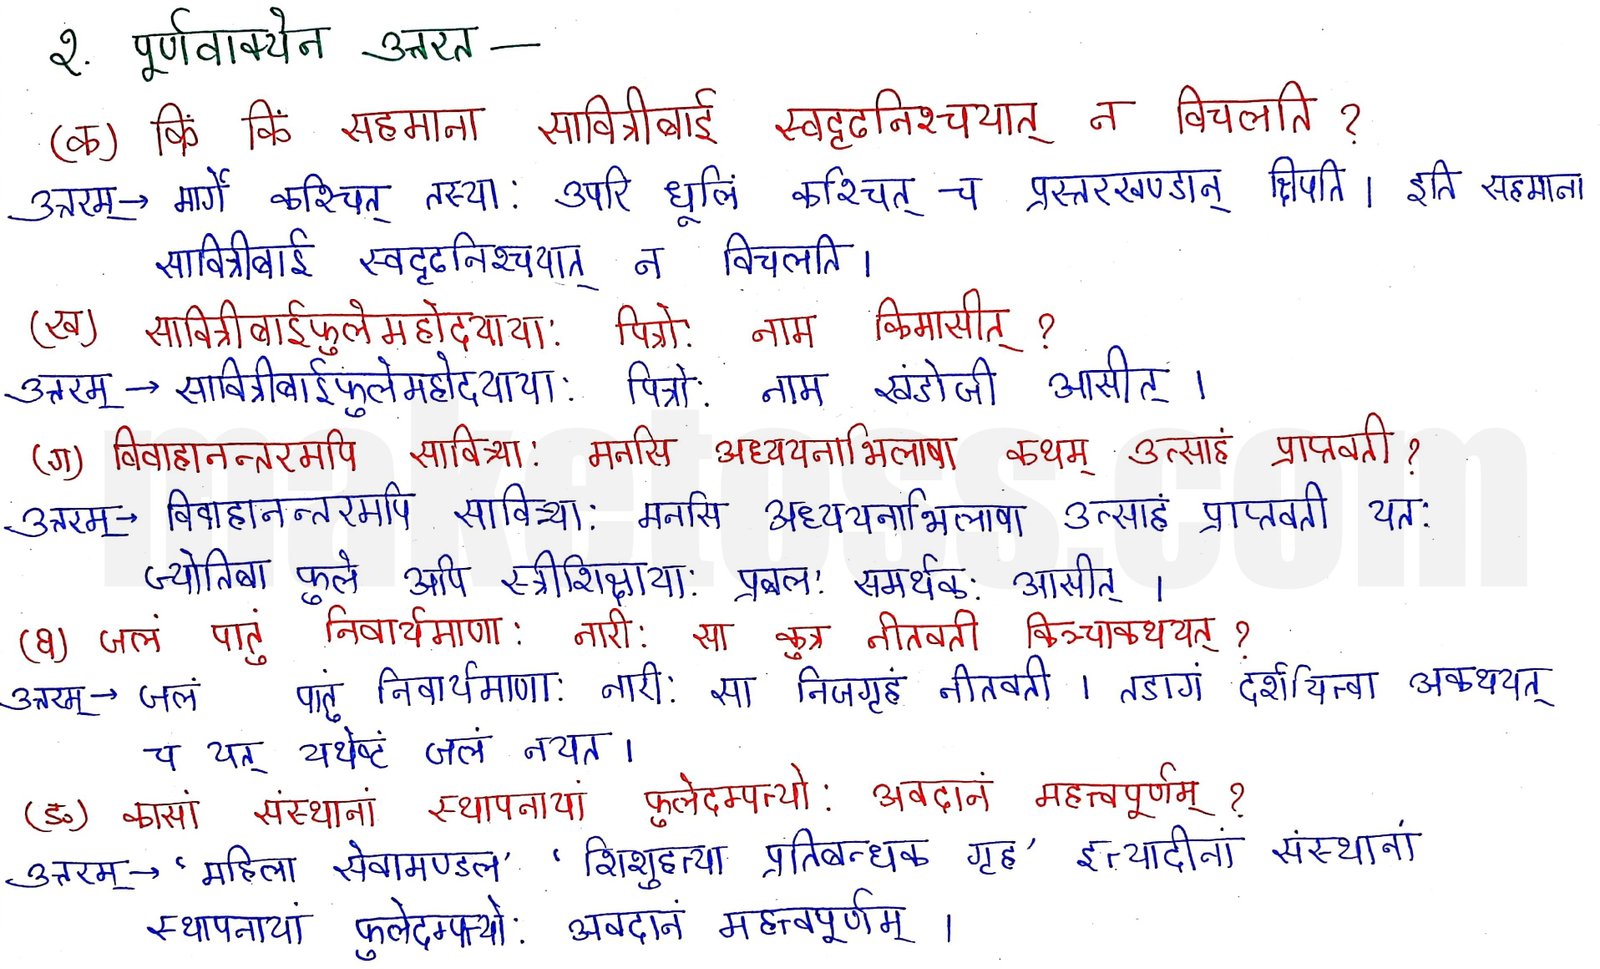 २. पूर्णवाक्येन उत्तरत —
(क) किं किं सहमाना सावित्रीबाई स्वदृढनिश्चयात् न विचलति ?
उत्तरम् → मार्गे कश्चित् तस्याः उपरि धूलिं कश्चित् च प्रस्तरखण्डान् क्षिपति । इति सहमाना
सावित्रीबाई स्वदृढनिश्चयात् न विचलति ।
(ख) सावित्रीबाईफुलेमहोदयायाः पित्रोः नाम किमासीत् ?
उत्तरम् → सावित्रीबाईफुलेमहोदयायाः पित्रोः नाम खंडोजी आसीत् ।
(ग) विवाहानन्तरमपि सावित्र्याः मनसि अध्ययनाभिलाषा कथम् उत्साहं प्राप्तवती ?
उत्तरम् → विवाहानन्तरमपि सावित्र्याः मनसि अध्ययनाभिलाषा उत्साहं प्राप्तवती यतः
ज्योतिबा फुले अपि स्त्रीशिक्षायाः प्रबलः समर्थकः आसीत् ।
(घ) जलं पातुं निवार्यमाणाः नारीः सा कुत्र नीतवती किञ्चाकथयत् ?
उत्तरम् → जलं पातुं निवार्यमाणाः नारीः सा निजगृहं नीतवती । तडागं दर्शयित्वा अकथयत्
च यत् यथेष्टं जलं नयत ।
(ङ) कासां संस्थानां स्थापनायां फुलेदम्पत्योः अवदानं महत्त्वपूर्णम् ?
उत्तरम् → ‘महिला सेवामण्डल’ ‘शिशुहत्या प्रतिबन्धक गृह’ इत्यादीनां संस्थानां
स्थापनायां फुलेदम्पत्योः अवदानं महत्त्वपूर्णम् ।
maketoss.com